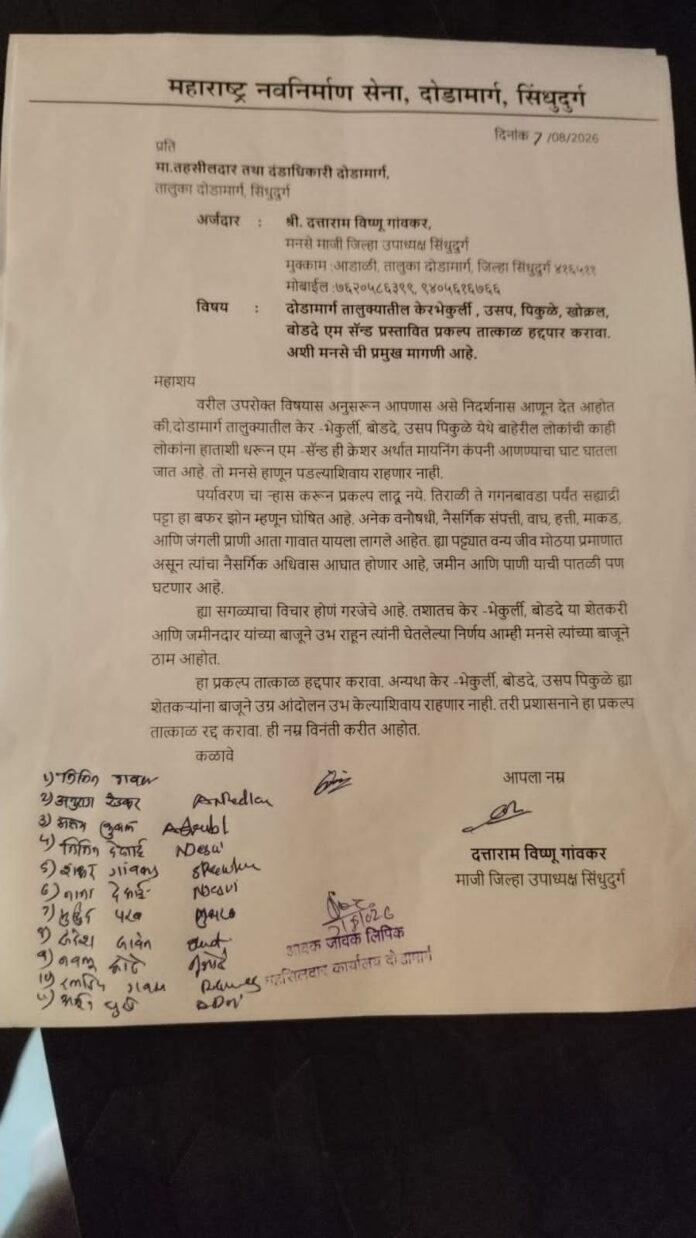 महाराष्ट्र नवनिर्माण सेना, दोडामार्ग, सिंधुदुर्ग
दिनांक 7 /08/2026
प्रति
मा.तहसीलदार तथा दंडाधिकारी दोडामार्ग,
तालुका दोडामार्ग, सिंधुदुर्ग
अर्जदार : श्री. दत्ताराम विष्णू गांवकर,
मनसे माजी जिल्हा उपाध्यक्ष सिंधुदुर्ग
मुक्काम :आडाळी, तालुका दोडामार्ग, जिल्हा सिंधुदुर्ग ४१६५११
मोबाईल :७६२०५८६३९९, ९४०५६१६७६६
विषय : दोडामार्ग तालुक्यातील केरभेकुर्ली , उसप, पिकुळे, खोक्रल,
बोडदे एम सॅन्ड प्रस्तावित प्रकल्प तात्काळ हद्दपार करावा.
अशी मनसे ची प्रमुख मागणी आहे.
महाशय
वरील उपरोक्त विषयास अनुसरून आपणास असे निदर्शनास आणून देत आहोत
की,दोडामार्ग तालुक्यातील केर -भेकुर्ली, बोडदे, उसप पिकुळे येथे बाहेरील लोकांची काही
लोकांना हाताशी धरून एम -सॅन्ड ही क्रेशर अर्थात मायनिंग कंपनी आणण्याचा घाट घातला
जात आहे. तो मनसे हाणून पडल्याशिवाय राहणार नाही.
पर्यावरण चा ऱ्हास करून प्रकल्प लादू नये. तिराळी ते गगनबावडा पर्यंत सह्याद्री
पट्टा हा बफर झोन म्हणून घोषित आहे. अनेक वनौषधी, नैसर्गिक संपत्ती, वाघ, हत्ती, माकड,
आणि जंगली प्राणी आता गावात यायला लागले आहेत. ह्या पट्ट्यात वन्य जीव मोठया प्रमाणात
असून त्यांचा नैसर्गिक अधिवास आघात होणार आहे, जमीन आणि पाणी याची पातळी पण
घटणार आहे.
ह्या सगळ्याचा विचार होणं गरजेचे आहे. तशातच केर -भेकुर्ली, बोडदे या शेतकरी
आणि जमीनदार यांच्या बाजूने उभ राहून त्यांनी घेतलेल्या निर्णय आम्ही मनसे त्यांच्या बाजूने
ठाम आहोत.
हा प्रकल्प तात्काळ हद्दपार करावा. अन्यथा केर -भेकुर्ली, बोडदे, उसप पिकुळे ह्या
शेतकऱ्यांना बाजूने उग्र आंदोलन उभ केल्याशिवाय राहणार नाही. तरी प्रशासनाने हा प्रकल्प
तात्काळ रद्द करावा. ही नम्र विनंती करीत आहोत.
कळावे
आपला नम्र
दत्ताराम विष्णू गांवकर
माजी जिल्हा उपाध्यक्ष सिंधुदुर्ग
1)
2)
3)
4) नितिन देसाई
5)
6) नाना देसाई
7)
8)
9)
10)
11)
आवक जावक लिपिक
तहसिलदार कार्यालय दोडामार्ग